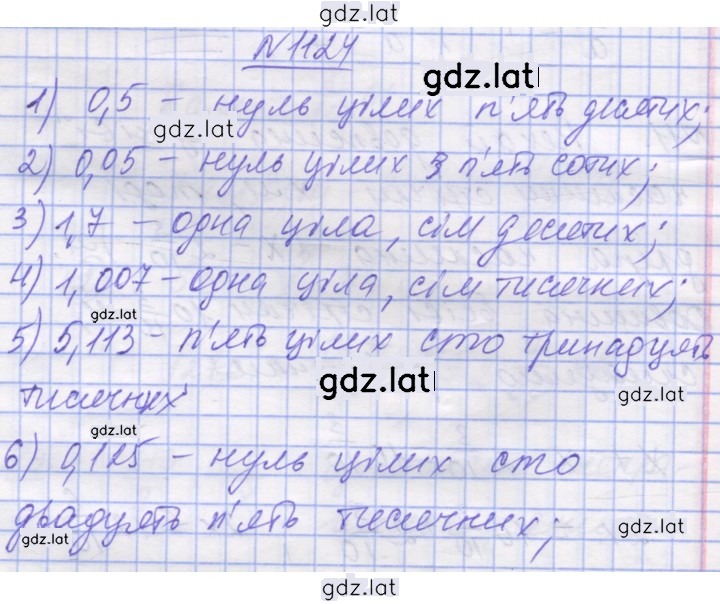 gdz.lat
№1124
gdz.lat
1) 0,5 – нуль цілих п'ять десятих;
gdz.lat
gdz.lat
2) 0,05 – нуль цілих п'ять сотих;
3) 1,7 – одна ціла, сім десятих;
4) 1,007 – одна ціла, сім тисячних;
gdz.lat
5) 5,113 – п'ять цілих сто тринадцять
gdz.lat
тисячних
gdz.lat
gdz.lat
6) 0,125 – нуль цілих сто
двадцять п'ять тисячних;
gdz.lat
gdz.lat
gdz.lat